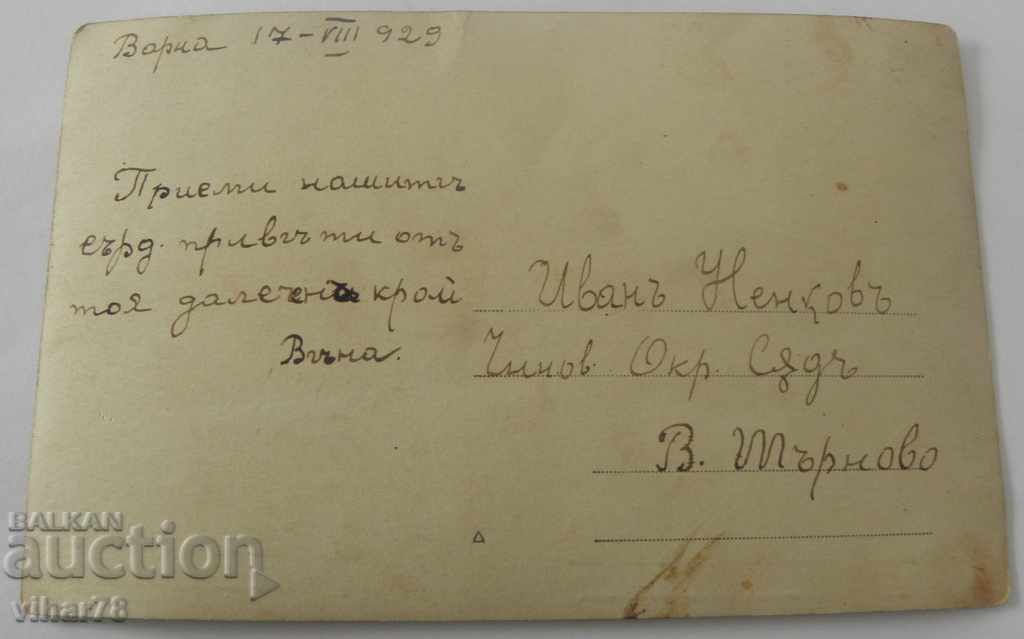 Варна 17-VIII 929
Приеми нашитѣ
сърд. привѣти отъ
тоя далеченъ край
Вѣна.
Иванъ Ненковъ
Чинов. Окр. Сѫдъ
В. Търново
BALKAN
auction
vihar78